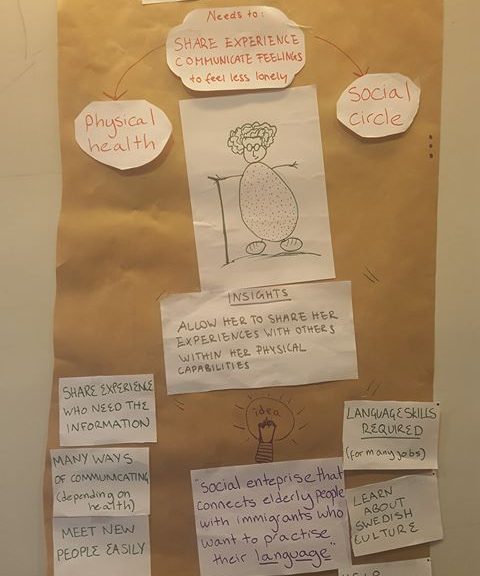 Needs to:
SHARE EXPERIENCE
COMMUNICATE FEELINGS
to feel less lonely
physical
health
social
circle
INSIGHTS
ALLOW HER TO SHARE HER
EXPERIENCES WITH OTHERS
WITHIN HER PHYSICAL
CAPABILITIES
SHARE EXPERIENCE
WHO NEED THE
INFORMATION
MANY WAYS
OF COMMUNICATING
(depending on
health)
MEET NEW
PEOPLE EASILY
idea
"Social enteprise that
connects elderly people
with immigrants who
want to practise
their language"
LANGUAGE SKILLS
REQUIRED
(for many jobs)
LEARN
ABOUT
SWEDISH
CULTURE